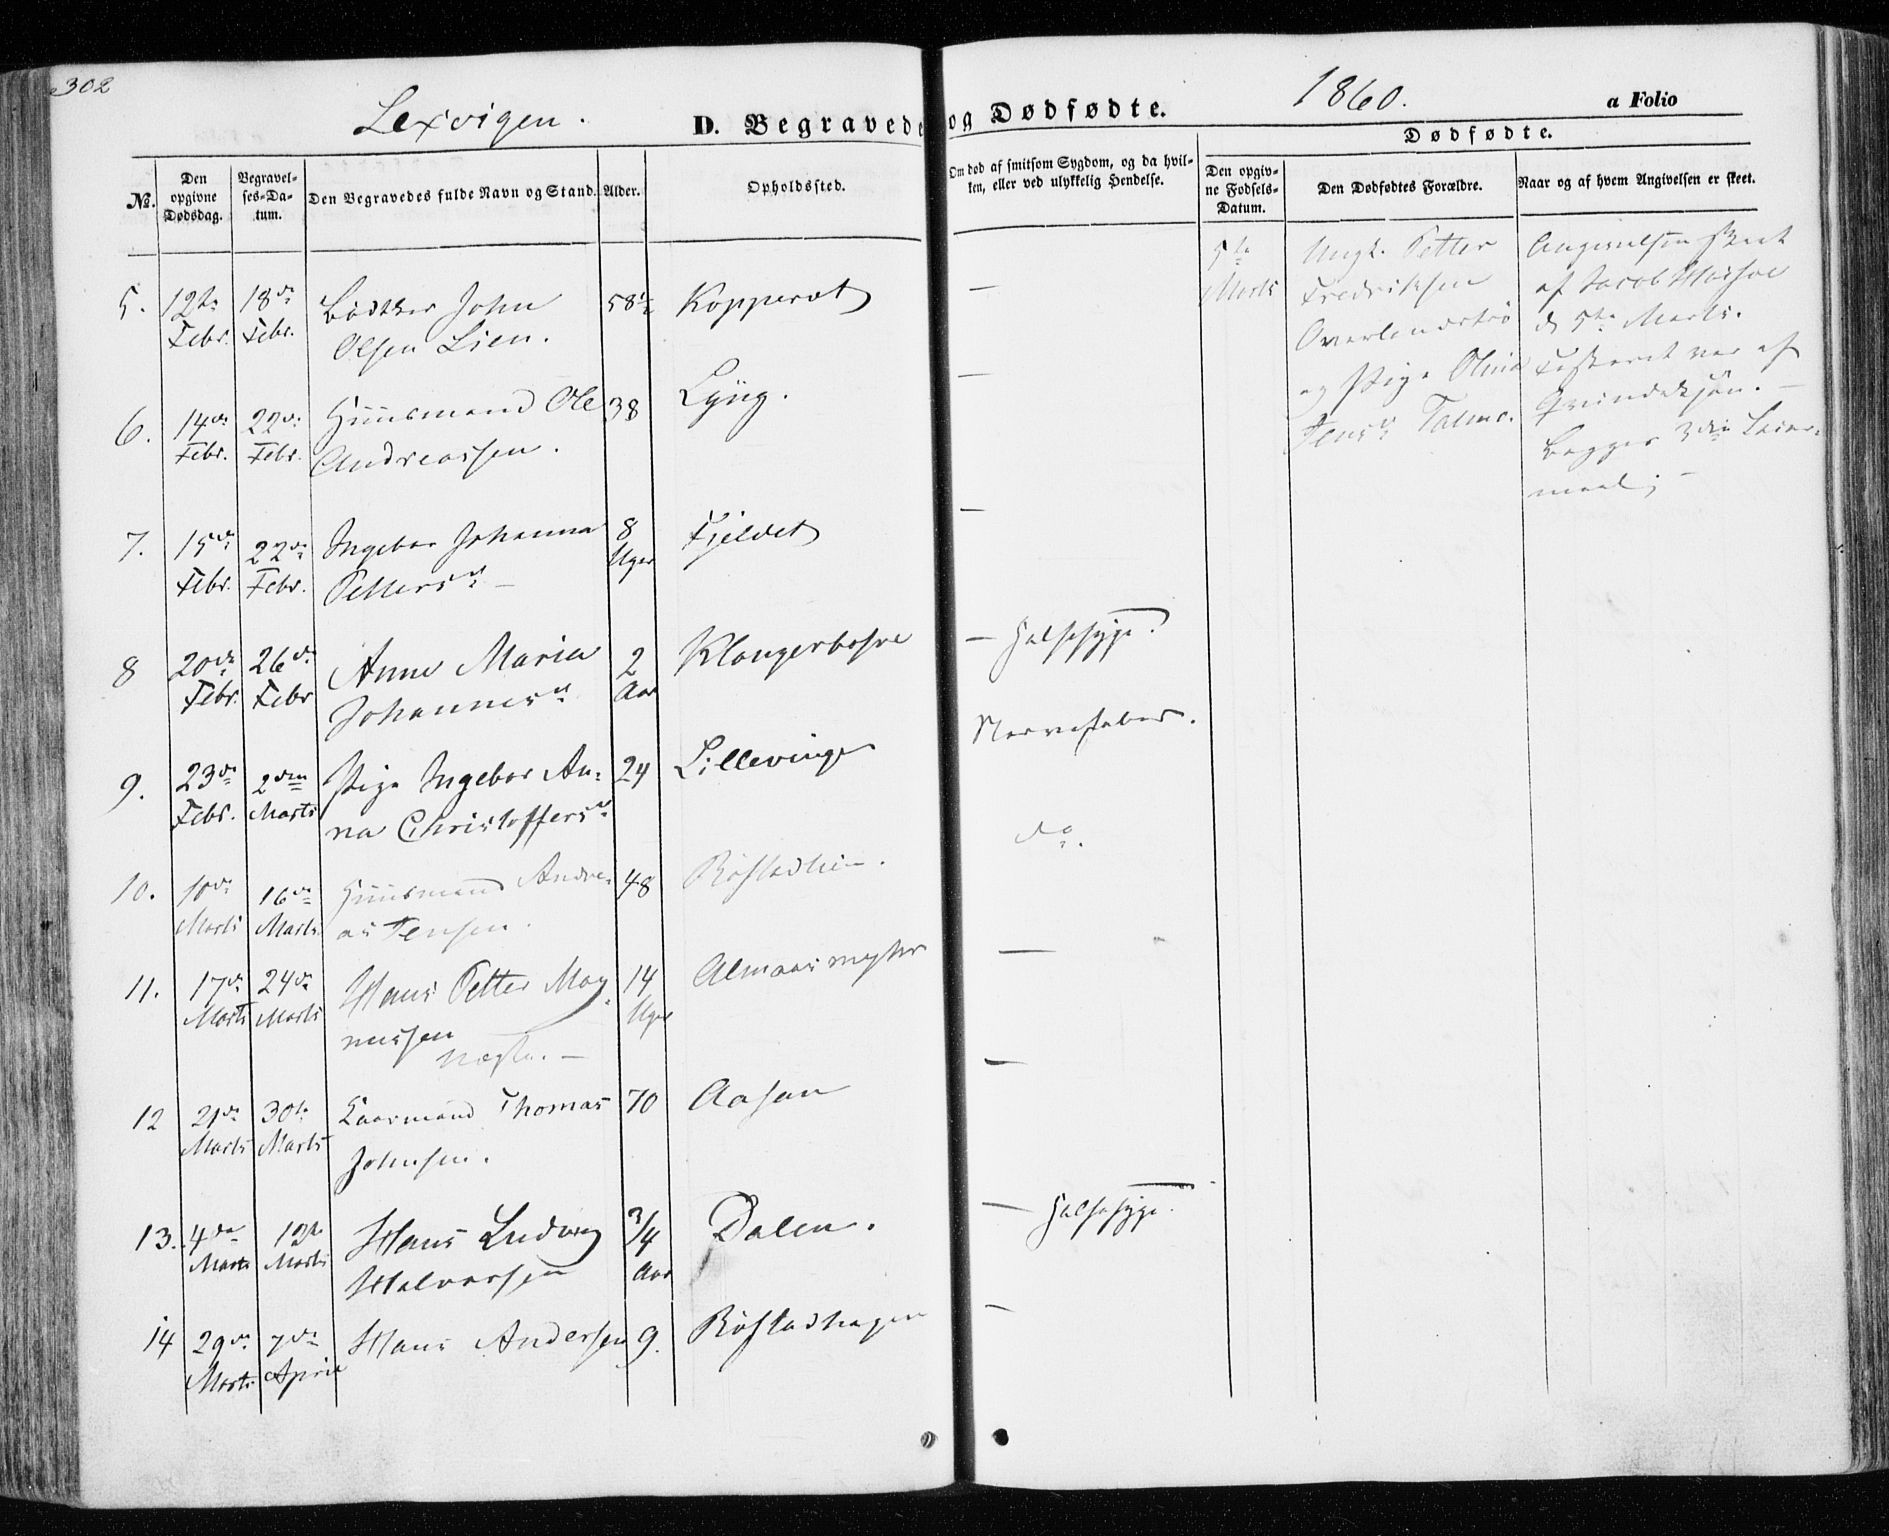 302
Lexvigen.
D. Begravede og Dødfødte.
1860.
a Folio
No.
Den opgivne Dødsdag.
Begravelses-Datum.
Den Begravedes fulde Navn og Stand.
Alder.
Opholdssted.
Om død af smitsom Sygdom, og da hvilken, eller ved ulykkelig Hendelse.
Dødfødte.
Den opgivne Fødsels-Datum.
Den Dødfødtes Forældre.
Naar og af hvem Angivelsen er skeet.
5. 12te Febr. 18de Febr. Bødtker John 58½ Kopperaet —
Olsen Lien.
6. 14de Febr. 22de Febr. Huusmand Ole 38 Lÿng. —
Andreassen.
7. 15de Febr. 22de Febr. Ingebor Johanna 8 Uger Fjeldet —
Petters dr —
8 20de Febr. 26de Febr Anne Maria 2 Aar — Halssyge.
Johannes dr
9. 23de Febr. 2den Marts Pige Ingebor An- 24 Lillevinge Nervefeber.
na Christoffers dr
10. 10de Marts 16de Marts Huusmand Andre- 48 Røstadlien. do.
as Jensen.
11. 17de Marts 24de Marts Hans Petter Mag- 14 Uger —
nussen
12 21de Marts 30te Marts Thomas 70 Aasan —
Johnsen.
13. 4de Marts 12te Marts Hans Ludvig 3/4 Aar Dalen. — Halssyge.
Halvorsen
14 29de Marts 7de April Hans Andersen 9. Røstadhagen —
5te Marts
Ungk. Petter
Fredriksen
Overlandstrø
og Pige Olina
Jens dr
Angivelsen skeet
af Jacob
d 5te Marts.
Fosteret var af
Qvindekjøn. —
Begges 3die Leier-
maal; —